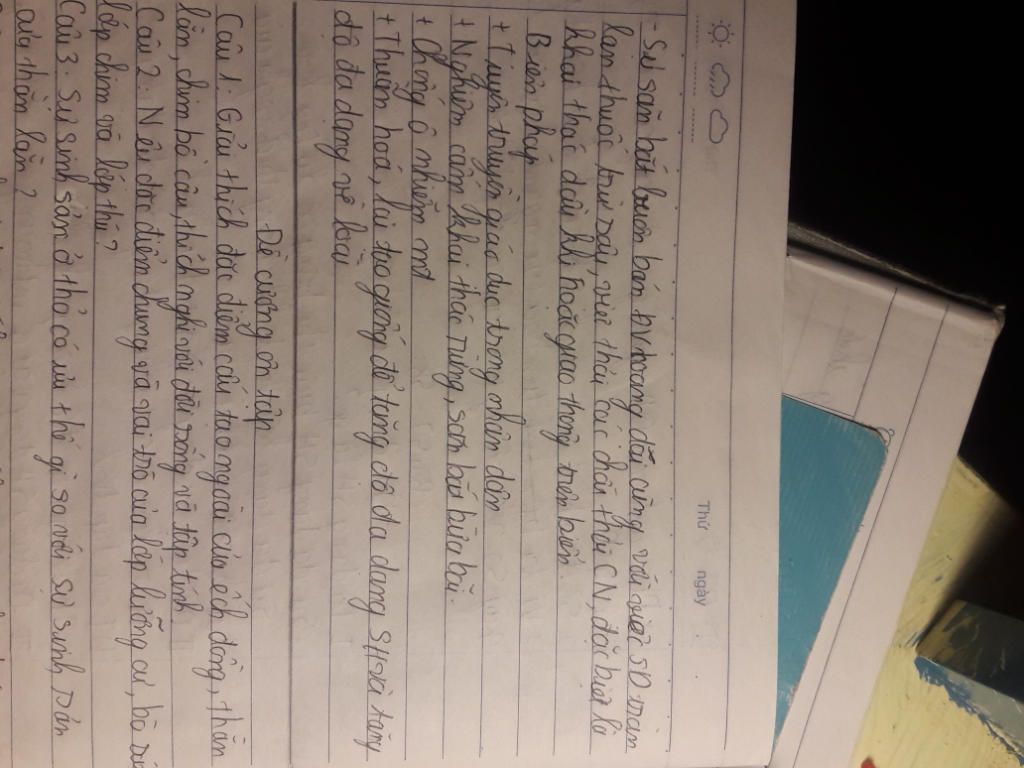 Thứ ngày
- Sự săn bắt buôn bán ĐV hoang dã cùng với việc SD tràn
lan thuốc trừ sâu, việc thải các chất thải CN, đặc biệt là
khai thác dầu khí hoặc giao thông trên biển.
Biện pháp
+ Tuyên truyền giáo dục trong nhân dân
+ Nghiêm cấm khai thác rừng, săn bắt bừa bãi.
+ Chống ô nhiễm mt
+ Thuần hoá, lai tạo giống để tăng độ đa dạng SH và tăng
độ đa dạng về loài
Đề cương ôn tập
Câu 1. Giải thích đặc điểm cấu tạo ngoài của ếch đồng, thằn
lằn, chim bồ câu, thích nghi với đời sống và tập tính
Câu 2. Nêu đặc điểm chung và vai trò của lớp lưỡng cư, bò
lớp chim và lớp thú?
Câu 3. Sự sinh sản ở thỏ có ưu thế gì so với sự sinh sản
của thằn lằn?